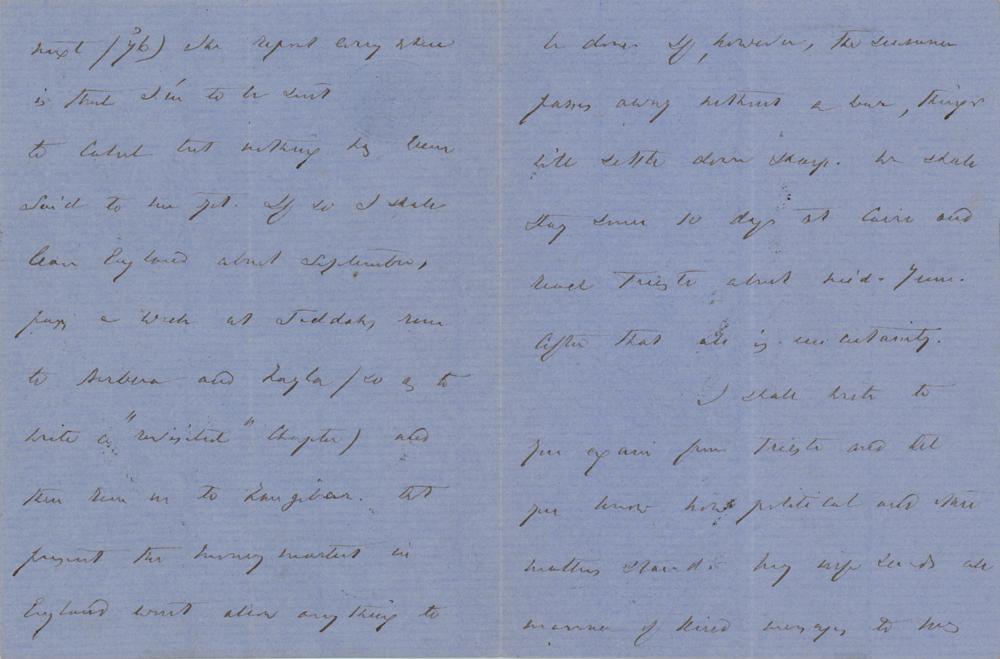 next (/76) The report every where
is that I'm to be sent
to Cabul but nothing has been
said to me yet. If so I shall
leave England about September,
pass a week at Jeddah, run
to Berbera and Zayla (so as to
write a "revisited" Chapter) and
then run on to Zanzibar. At
present the money market in
England won't allow anything to
be done. If, however, the summer
passes away without a war, things
will settle down sharp. We shall
stay some 10 days at Cairo and
reach Trieste about mid-June.
After that all is uncertainty.
I shall write to
you again from Trieste and let
you know how political and other
matters stand. My wife sends all
manner of kind messages to